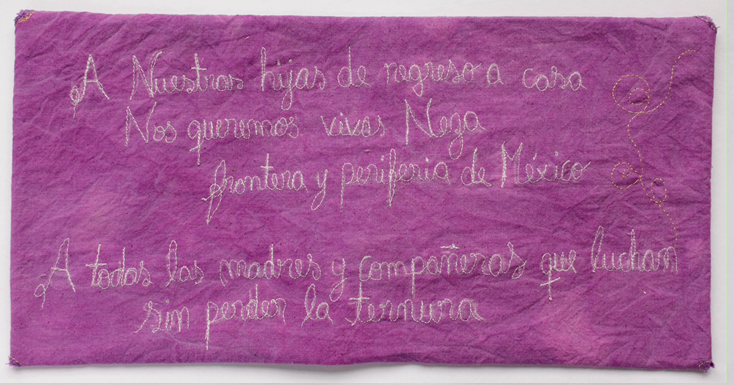 A Nuestras hijas de regreso a casa
Nos queremos vivas Neza
frontera y periferia de México
A todas las madres y compañeras que luchan
sin perder la ternura